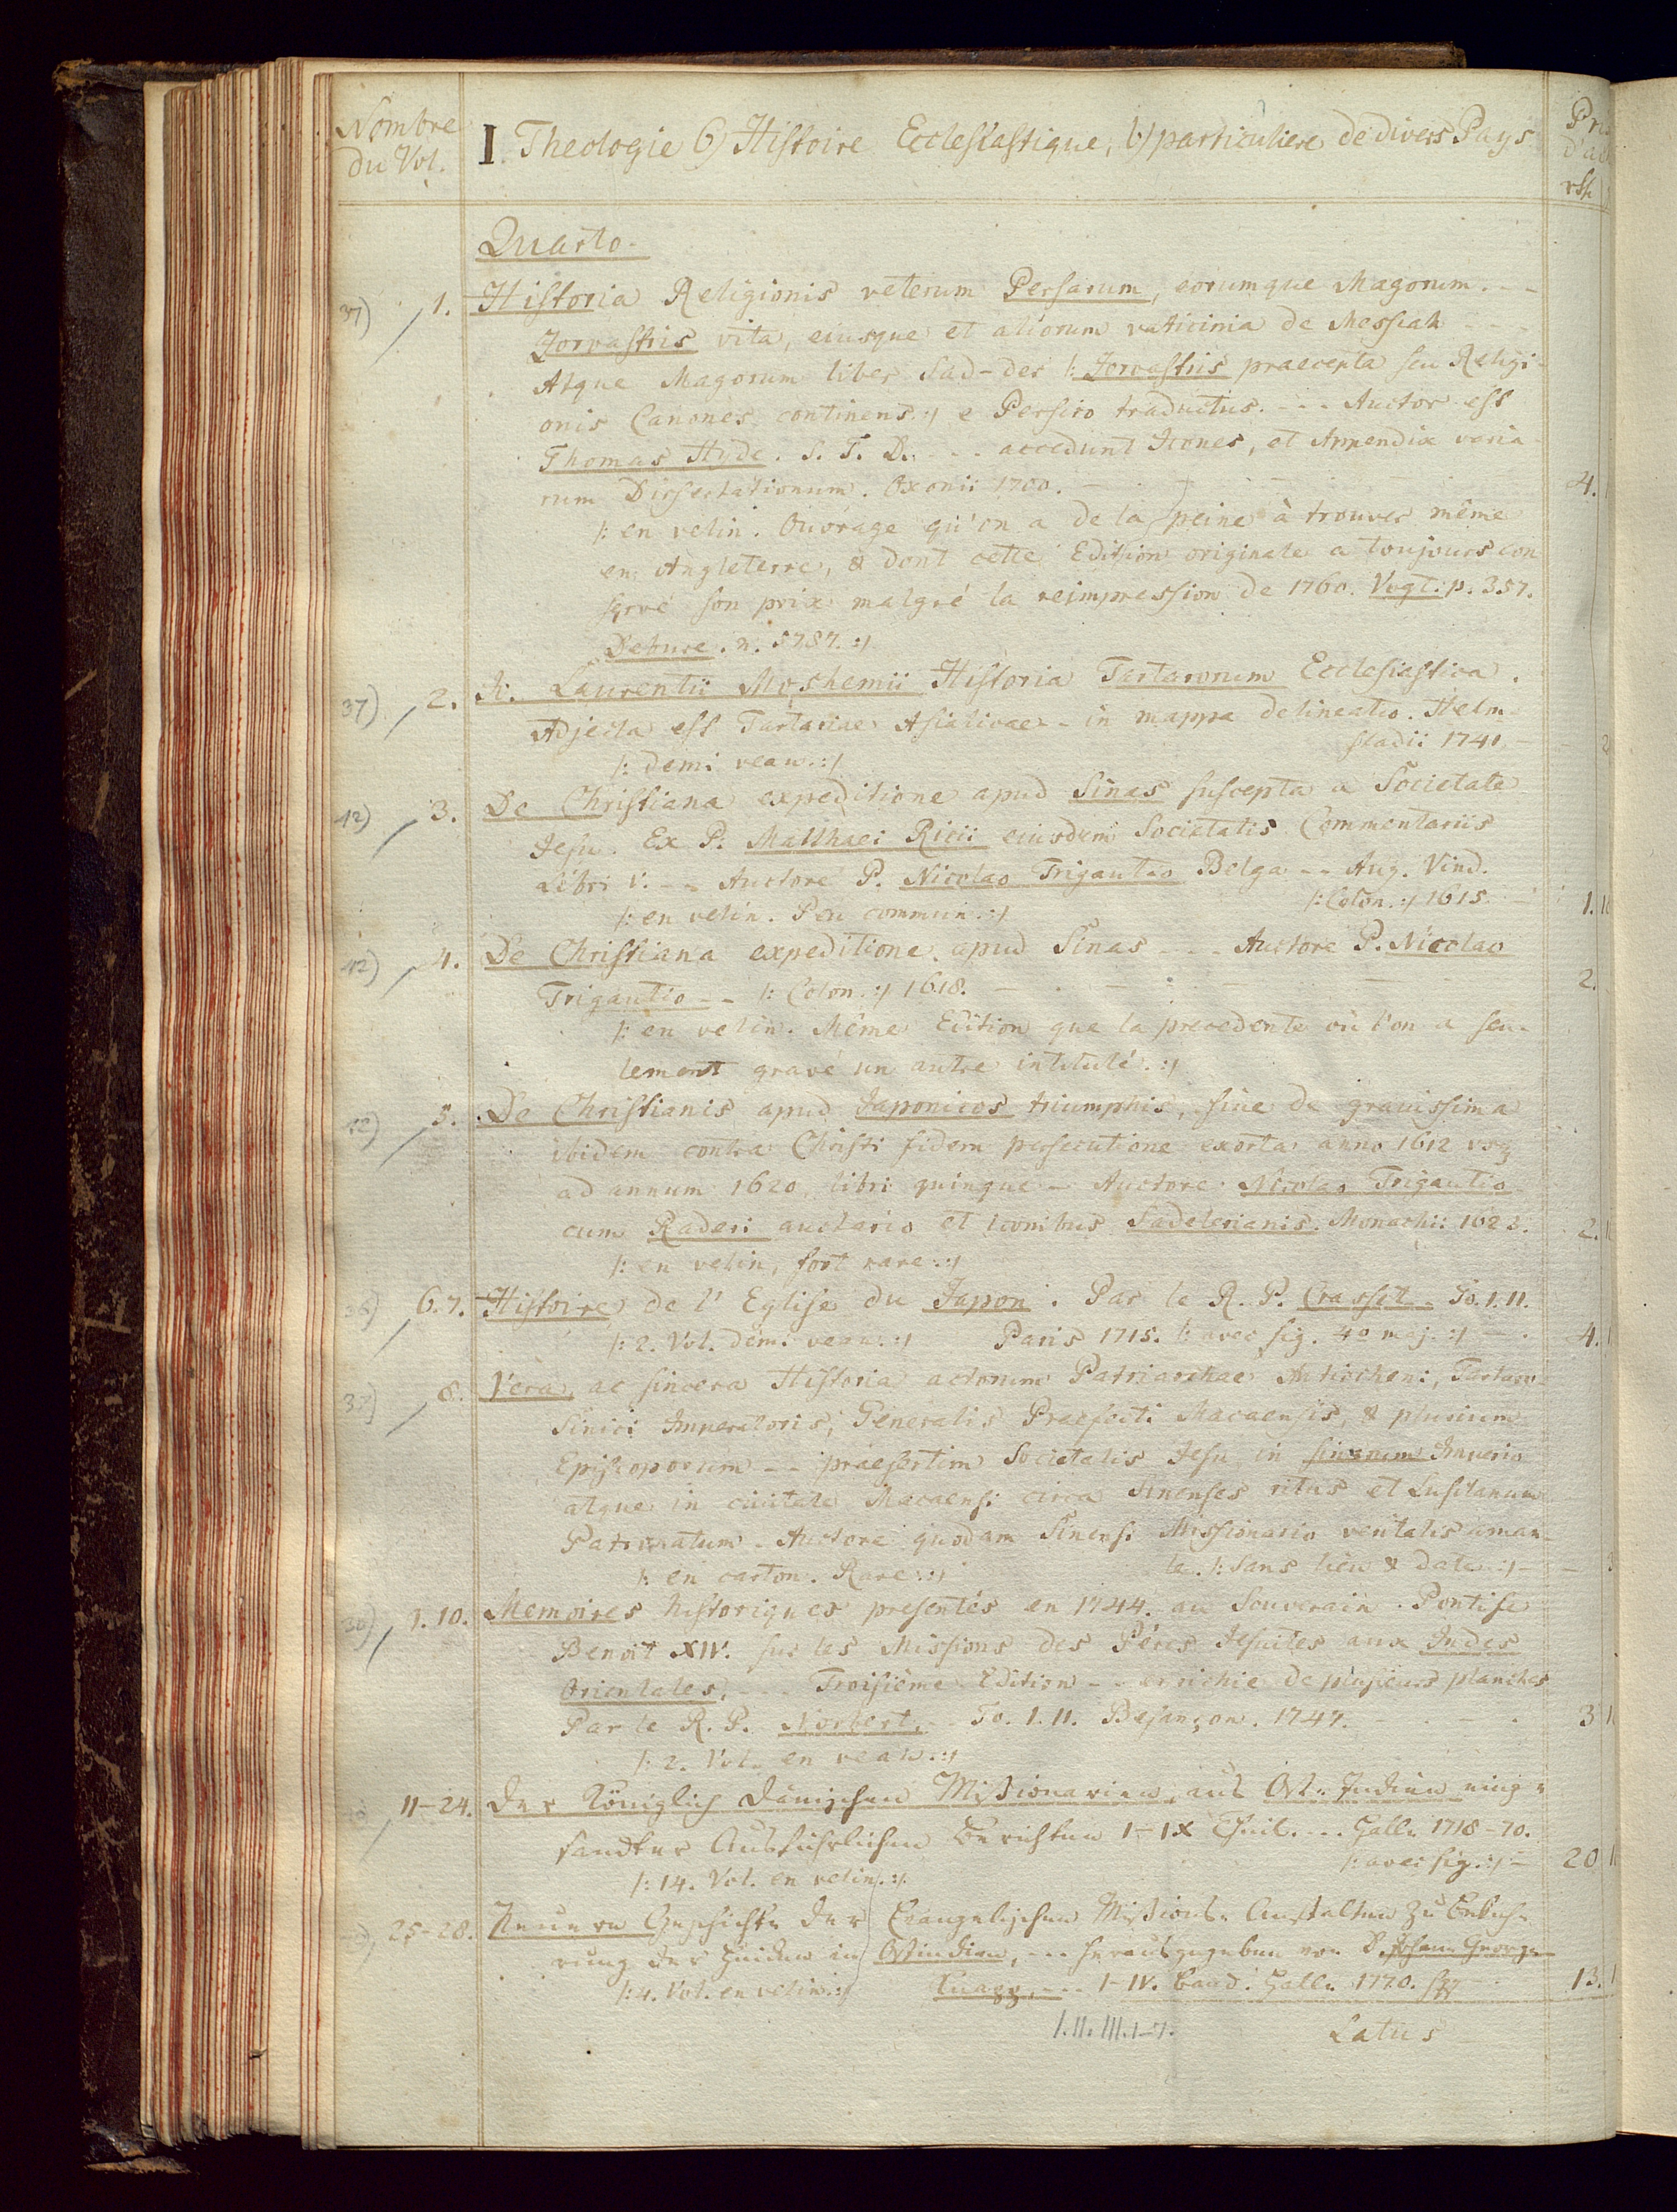 Nombre
du Vol.
I. Theologie 6) Histoire Ecclesiastique, b) particuliere de divers Pays
rth
Quarto.
37) 1. Historia Religionis veterum Persarum, eorumque Magorum. --
Zoroastris vita, eiusque et aliorum vaticinia de Messiah ---
Atque Magorum liber Sad-der /: Zoroastris praecepta seu Religi-
onis Canones continens :/ e Persico traductus. --- Auctor est
Thomas Hyde. S. T. D. --- accedunt Icones, et Appendix varia-
rum Dissertationum. Oxonii 1700. 4.
/: en velin. Ouvrage qu'on a de la peine à trouver même
en Angleterre, & dont cette Edition originale a toujours con
servé son prix malgré la reimpression de 1760. Vogt. p. 357.
Debure. n. 5787. :/
37) 2. Laurentii Moshemii Historia Tartarorum Ecclesiastica.
Adjecta est Tartariae Asiaticae - in mappa delineatio. Helm-
stadii 1741 - 2
/: demi veau. :/
12) 3. De Christiana expeditione apud Sinas suscepta a Societate
Jesu. Ex P. Matthaei Ricii eiusdem Societatis Commentariis
Libri V. -- Auctore P. Nicolao Trigautio Belga -- Aug. Vind.
/: en velin. Peu commun. :/ /: Colon. :/ 1615. 1.
12) 4. De Christiana expeditione apud Sinas -- Auctore P. Nicolao
Trigautio -- /: Colon. :/ 1618. 2.
/: en velin. Même Edition que la precedente où l'on a seu-
lement gravé un autre intitulé. :/
12) 5. De Christianis apud Japonicos triumphis, sive de gravissima
ibidem contra Christi fidem persecutione exorta anno 1612 usq
ad annum 1620, libri quinque - Auctore Nicolao Trigautio
cum Raderi auctario et iconibus Sadelerianis. Monachii 1623. 2.
/: en velin, fort rare. :/
36) 6.7. Histoire de l' Eglise du Japon. Par le R. P. Crasset. To. I. II.
/: 2. Vol. demi veau. :/ Paris 1715. /: avec fig. 4o maj. :/ 4.
37) 8. Vera, ac sincera Historia actorum Patriarchae Antiocheni, Tartaro-
Sinici Imperatoris, Generalis Praefecti Macaensis, & plurium
Episcoporum -- praesertim Societatis Jesu in sinarum Imperio
atque in civitate Macaensi circa Sinenses ritus et Lusitanum
Patronatum. Auctore quodam Sinensi Missionario veritatis aman-
te. /: Sans lieu & date. :/ - 3
/: en carton. Rare. :/
36) 9.10. Memoires historiques presentés en 1744. au Souverain Pontife
Benoit XIV. sur les Missions des Péres Jesuites aux Indes
Orientales, --- Troisiéme Edition -- enrichie de plusieurs planches
Par le R. P. Norbert. - To. I. II. Besançon. 1747. 3
/: 2. Vol. en veau. :/
11-24. Der Königlich Dänischen Missionarien, aus Ost-Indien einge-
sandter Ausführlichen Berichten I-IX Theil. --- Halle 1718-70.
/: avec fig. :/ - 20
/: 14. Vol. en velin. :/
25-28. Neuere Geschichte der Evangelischen Missions-Anstalten zu Bekeh-
rung der Heiden in Ostindien, --- herausgegeben von D. Johann Georg
/: 4. Vol. en velin. :/ Knapp, --- I-IV. Band. Halle 1770. sqq 13.
I. II. III. 1-7. Latus